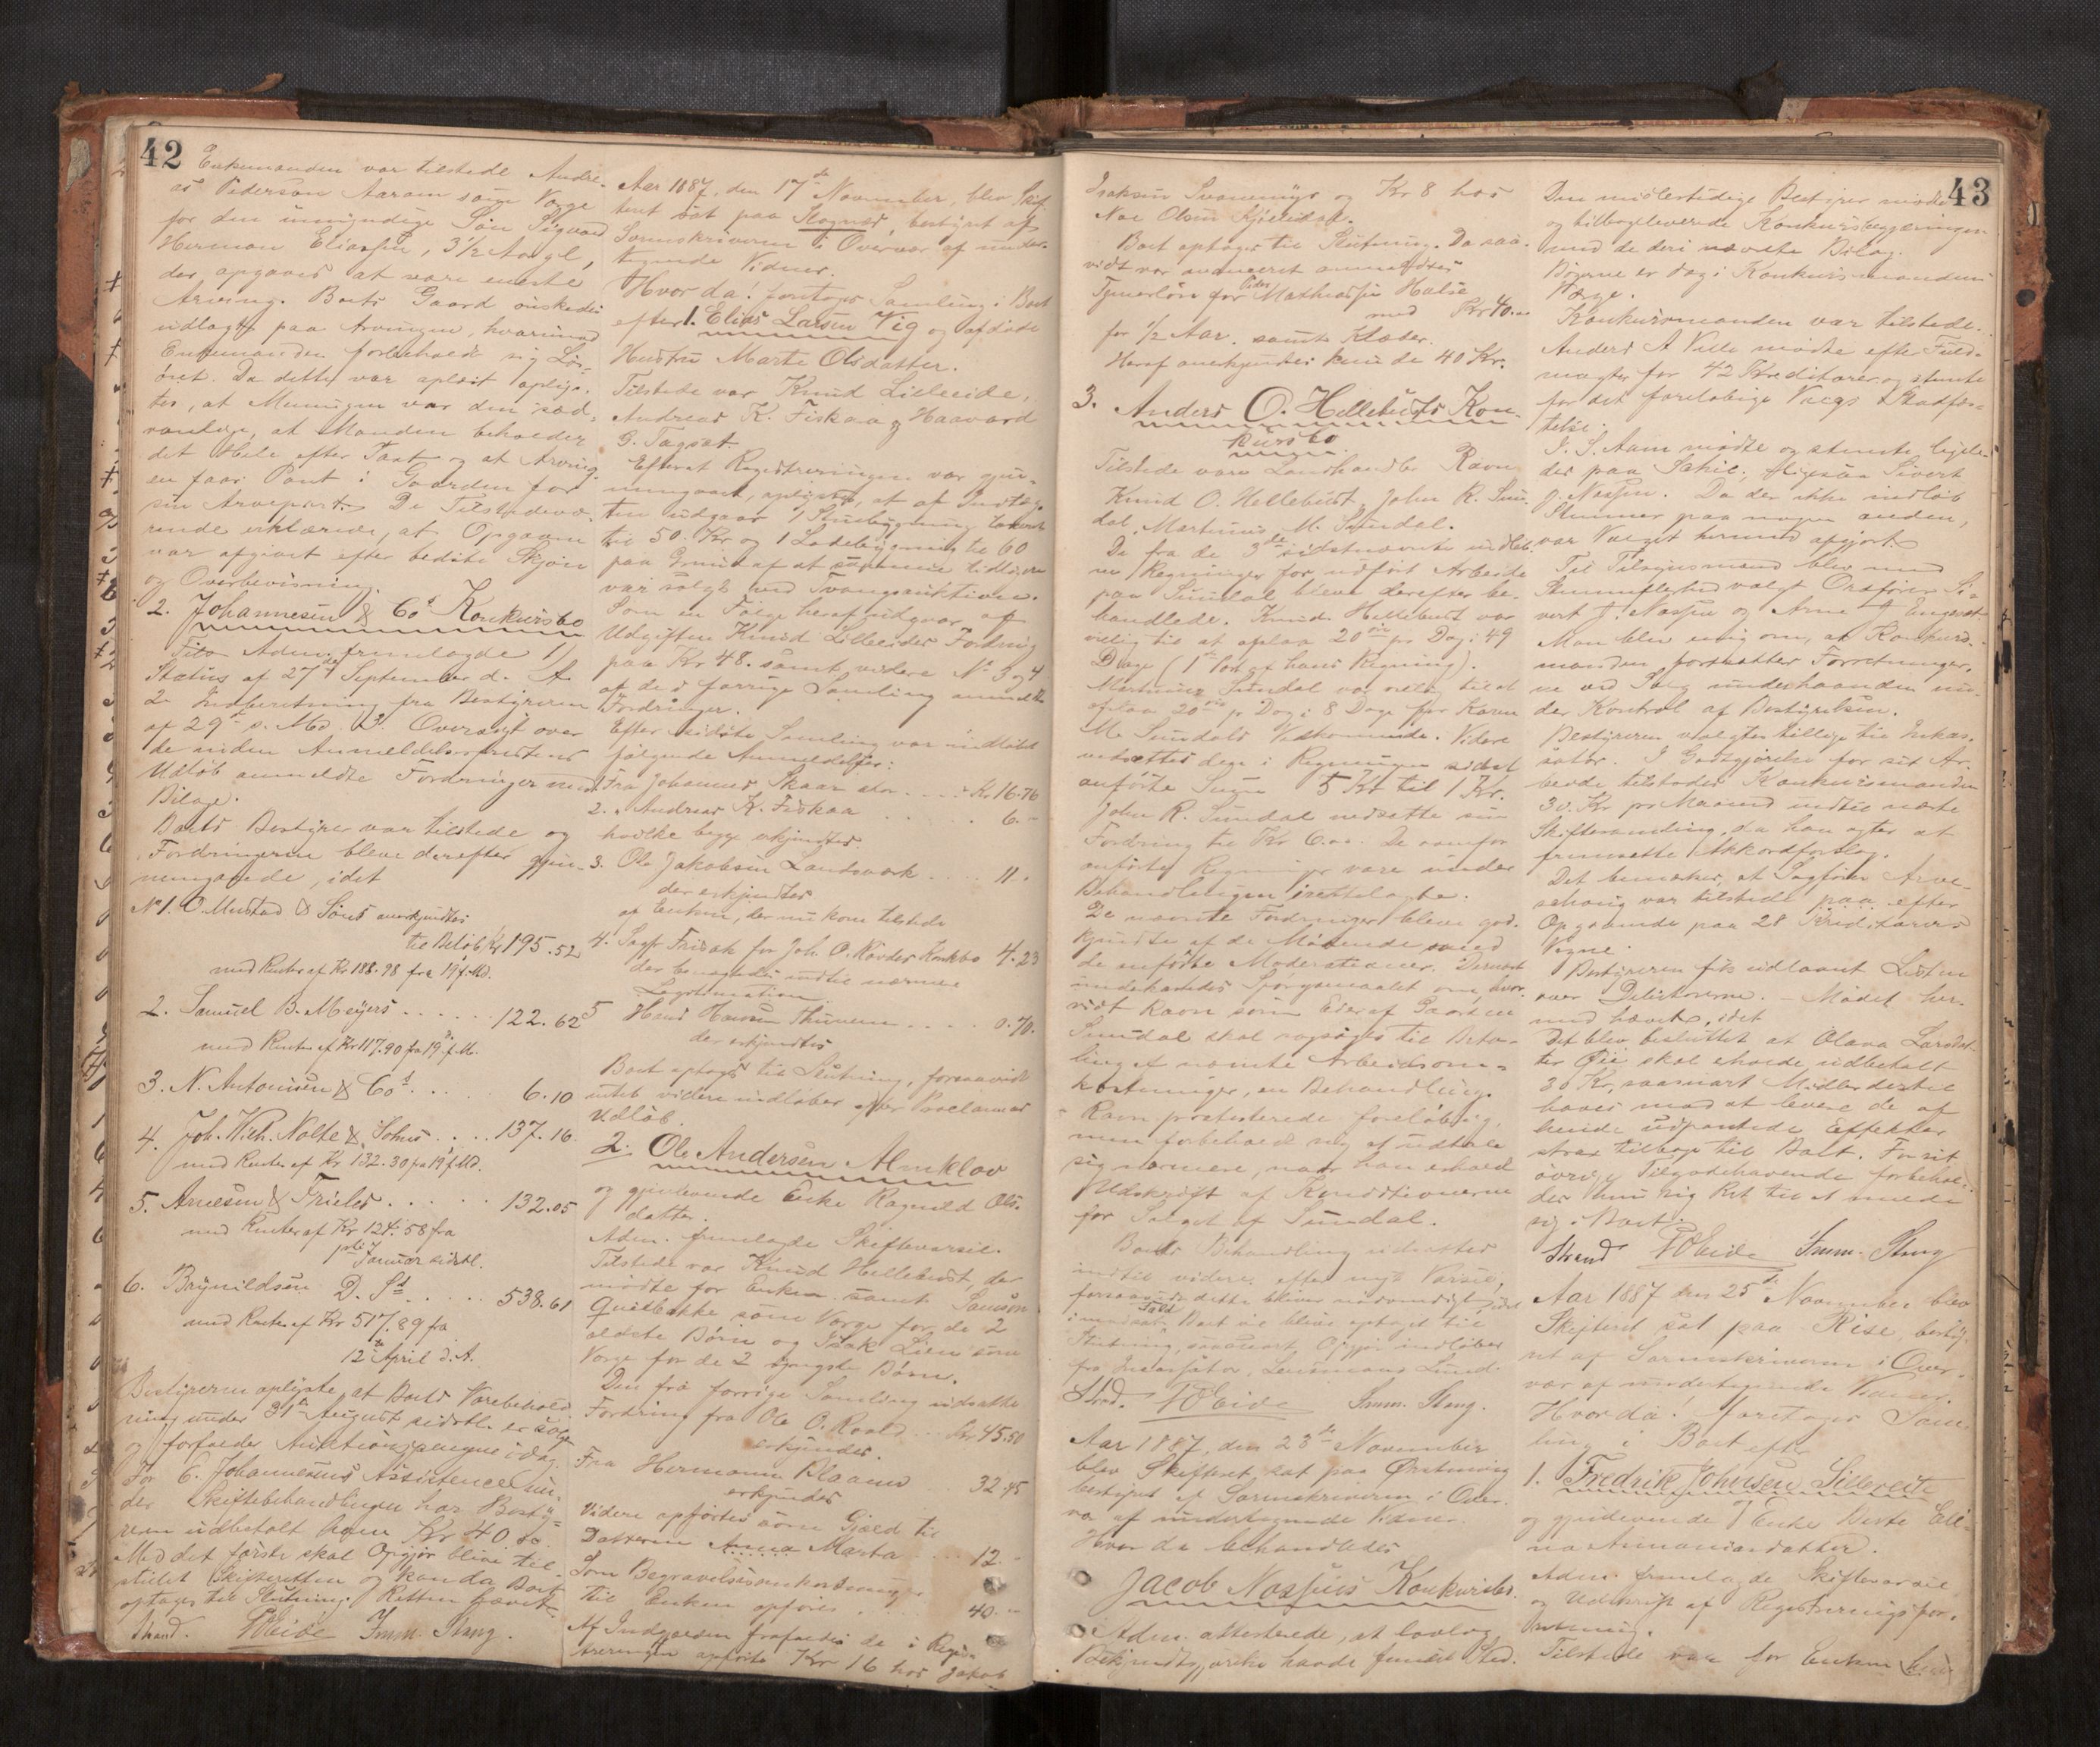 42
Enkemanden var tilstede Andre-
as Pederson Aaram som Værge
for den umyndige Søn Sigvard
Herman Eliassen, 3½ Aar gl,
der opgaves at være eneste
Arving. Boets Gaard önskedes
udlagt paa Arvingen, hvorimod
Enkemanden forbeholdt sig Løs-
öret. Da dette var oplæst oplys-
tes, at Meningen var den sæd-
vanlige, at Manden beholder
det Hele efter Taxt og at Arving-
en faar Pant i Gaarden for
sin Arvepart. De Tilstedevæ-
rende erklærede, at Opgaven
var afgivet efter bedste Skjön
og Overbevisning.
2. Johannesen & Co's Konkursbo
Adm. fremlagde 1)
Status af 27de September d. A.
2. Indberetning fra Bestyreren
af 29de s. Md. 3. Oversigt over
de inden Anmeldelsesfristens
Udløb anmeldte Fordringer med
Bilage.
Boets Bestyrer var tilstede og
Fordringerne bleve derefter gjen-
nemgaaede, idet
No 1. O. Mustad & Søns anerkjendtes
til Beløb Kr 195.52
med Renter af Kr 188.98 fra 19 f. Md.
2. Samuel B. Meyers . . . . . . 122.62
med Renter af Kr 117.90 fra 19 f. M.
3. N. Antonisen & Co's . . . . . 6.10
4. Joh. Wilh. Nolte & Sohns . . . . 137.16
med Renter af Kr 132.30 fra 19 f. Md.
5. Arnesen & Frieles . . . . . . 132.05
med Renter af Kr 124.58 fra
1ste Januar sidstl.
6. Brynildsen D. Sd . . . . . 538.61
med Renter af Kr 517.89 fra
12te April d. A.
Bestyreren oplyste, at Boets Varebehold-
ning under 31te August sidstl. er solgt
og forfalder Auktionspengene idag.
For C. Johannesens Assistence un-
der Skiftebehandlingen har Besty-
reren udbetalt ham Kr 40.00
Med det første skal Opgjør blive til-
stillet Skifteretten og kan da Boet
optages til Slutning. Retten hævet.
Strand. Eide Imm. Stang.
Aar 1887, den 17de November, blev Skif-
teret sat paa Slagnæs, bestyret af
Sorenskriveren i Overvær af under-
tegnede Vidner.
Hvor da! foretoges Samling i Boet
efter 1. Elias Larsen Vig og afdøde
Hustru Marte Olsdatter.
Tilstede var Knud Lilleeide,
Andreas K. Fiskaa og Haavard
G. Tagsæt.
Efterat Registreringen var gjen-
nemgaaet, oplystes, at af Indtæg-
ten udgaar 1 Stuebygning taxeret
til 50 Kr og 1 Ladebygning til 60
paa Grund af at samme tidligere
var solgt ved Tvangsauktion.
Som en Følge heraf udgaar af
Udgiften Knud Lilleeides Fordring
paa Kr 48. samt videre No 3 og 4
af de i forrige Samling anmeldte
Fordringer.
Efter sidste Samling var indløbet
følgende Anmeldelser:
1. Fra Johannes Skaar stor . . . . . Kr 16.76
2. " Andreas K. Fiskaa . . . . . . 6.-
hvilke begge erkjendtes.
3. Ole Jakobsen Landsverk . . . . 11.-
der erkjendtes
af Enken, der nu kom tilstede
4. Sagf. Frisak for Joh. O. Røvdes Konkbo 4.23
der benegtedes indtil nærmere
Legitimation.
5 Hans Hansen Thunem . . . . 0.70.
der erkjendtes
Boet optages til Slutning, forsaavidt
intet videre indløber efter Proclamas
Udløb.
2. Ole Andersen Almklov
og gjenlevende Enke Ragnild Ols-
datter.
Adm. fremlagde Skiftevarsel.
Tilstede var Knud Hellebust, der
mødte for Enken samt Samson
Hvilbakke som Værge for de 2
ældste Børn og Isak Lien som
Værge for de 2 yngste Børn.
Den fra forrige Samling udsatte
Fordring fra Ole O. Roald . . . Kr 45.50
erkjendes.
Fra Hermann Blaam . . 32.45
erkjendes
Videre opførtes som Gjæld til
Datteren Anna Marta . . . 12.-
Som Begravelsesomkostninger
til Enken opføres . . . . 40.--
Af Indgjælden frafaldes de i Regis-
treringen opførte Kr 16 hos Jakob
43
Isaksen Svanemyr og Kr 8 hos
Noe Olsen Kjeldsdal.
Boet optages til Slutning. Da saa-
vidt var avanceret anmeldtes
Tjenerløn for Peder Mathiassen Halse
med Kr 40.--
for ½ Aar. samt Klæder.
Heraf anerkjendes kun de 40 Kr.
3. Anders O. Hellebusts Kon-
kursbo
Tilstede vare Landhandler Ravn
Knud O. Hellebust, John R. Sun-
dal, Martinus M. Sundal.
De fra de 3de sidstnævnte indløb-
ne Regninger for udført Arbeide
paa Sundal bleve derefter be-
handlede. Knud Hellebust var
villig til at afslaa 20 øre pr Dag i 49
Dage (1ste Post af hans Regning).
Martinus Sundal var villig til at
afslaa 20 øre pr Dag i 8 Dage for Karen
M. Sundals Vedkommende. Videre
nedsattes den i Regningen sidst
anførte Sum 5 Kr til 1 Kr.
John R. Sundal nedsatte sin
Fordring til Kr 6.00. De ovenfor
anførte Regninger vare under
Behandlingen irettelagte.
De nævnte Fordringer bleve god-
kjendte af de Mødende med
de anførte Moderationer. Dernæst
behandledes Spörgsmaalet om, hvor-
vidt Ravn som Eier af Gaarden
Sundal skal søgsøges til Beta-
ling af nævnte Arbeidsom-
kostninger, en Behandling
Ravn protesterede foreløbig,
men forbeholdt sig at udtale
sig nærmere, naar han erholdt
Udskrift af Konditionerne
for Salget af Sundal.
Boets Behandling udsattes
indtil videre efter nyt Varsel,
forsaavidt dette bliver nødvendigt, idet
i modsat Fald Boet vil blive optaget til
Slutning, saasnart Opgjør indløber
fra Incassator, Lensmand Lund.
Strand. Eide Imm. Stang.
Aar 1887, den 23de November
blev Skifteret sat paa Ørstenvig
bestyret af Sorenskriveren i Over-
vær af undertegnede Vidner.
Hvor da behandledes
Jacob Nasjøes Konkursbo.
Adm. attesterede, at lovlig
Bekjendtgjørelse havde fundet Sted.
Den midlertidige Bestyrer mødte
og tilbageleverede Konkursbegjæringen
med de deri nævnte Bilag.
Bøgerne er dog i Konkursmandens
Værge.
Konkursmanden var tilstede.
Anders A Velle mødte efter Fuld-
magter for 42 Kreditorer og stemte
for det foreløbige Valgs Stadfæs-
telse.
J. S. Aam mødte og stemte ligele-
des paa Sakic; ligesaa Sivert
J. Nasjøe. Da der ikke indløb
Stemmer paa nogen anden,
var Valget hermed afgjort.
Til Tilsynsmænd blev med
Stemmeflerhed valgt Ordfører Si-
vert J. Nasjøe og Arne J Engeset.
Man blev enig om, at Konkurs-
manden fortsætter Forretninger-
ne ved Salg underhaanden un-
der Kontrol af Bestyrelsen.
Bestyreren valgtes tillige til Inkas-
sator. I Godtgjørelse for sit Ar-
beide tilstodes Konkursmanden
30 Kr pr Maaned indtil næste
Skiftesamling, da han agter at
fremsætte Akkordforslag.
Det bemærkes, at Sagfører Arve-
schoug var tilstede paa efter
Opgaaende paa 28 Kreditorers
Vegne.
Bestyreren fik udlaant Listen
over Debitorerne. Mødet her-
med hævet, idet
Det blev besluttet at Olava Larsdat-
ter Øie skal erholde udbetalt
30 Kr, saasnart Midler dertil
haves mod at levere de af
hende udpantede Effekter
strax tilbage til Boet. For sit
øvrige Tilgodehavende forbehol-
der hun sig Ret til at melde
sig i Boet.
Strand Eide Imm. Stang
Aar 1887 den 25de November blev
Skifteret sat paa Rise, besty-
ret af Sorenskriveren i Over-
vær af undertegnede Vidner.
Hvor da! foretoges Sam-
ling i Boet efter
1. Fredrik Johnsen Lilleeide
og gjenlevende Enke Berte Eli-
na Asmaniasdatter.
Adm. fremlagde Skiftevarsel
og Udskrift af Registreringsfor-
retning.
Tilstede var for Enken